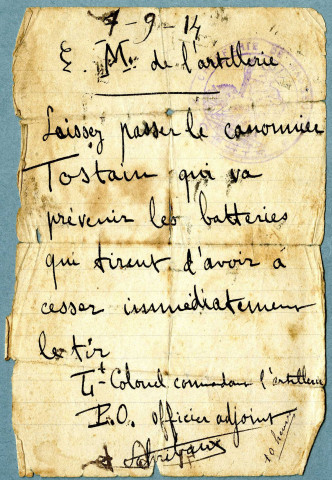 7-9-14
E. M. de l'artillerie
Laissez passer le canonnier
Tostain qui va
prévenir les batteries
qui tirent d'avoir à
cesser immédiatement
le tir
Lt-Colonel commandant l'artillerie
P.O. officier adjoint
10 heures